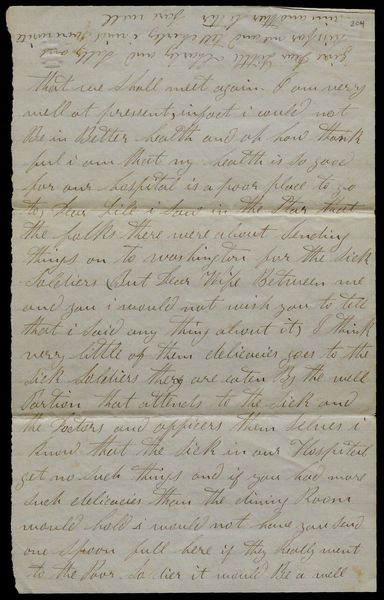 204
that we shall meet again. I am very
well at present, infact i could not
Be in Better health and oh how thank
ful i am that my health is so good
for our hospital is a poor place to go
to, Dear Wife i saw in the Star that
the folks there were about sending
things on to washington for the sick
Soldiers, But Dear Wife Between me
and you i would not wish you to tell
that i said any thing about it, I think
very little of them delicacies goes to the
Sick Soldiers they are eaten By the well
Portion that attends to the sick and
the Doctors and officers them selves i
know that the sick in our Hospital
get no such things and if you had more
such delicacies than the dining Room
would hold i would not have you send
one spoon full here if they Really went
to the Poor Soldier it would Be a well
give Dear Little Charly and Lilly one
kiss for me and tell Lilly i will
him another letter